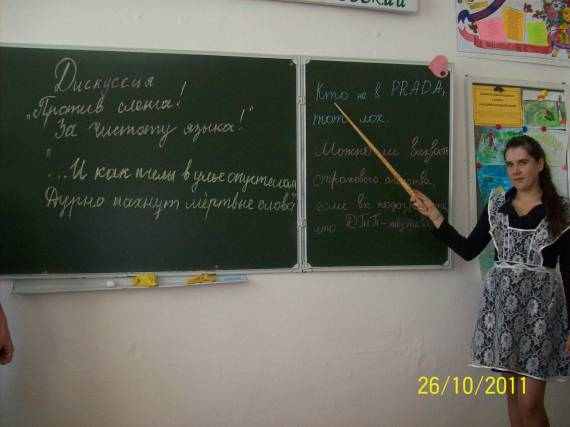 Дискуссия
"Против сленга!
За чистоту языка!"
"
...И как пчелы в улье опустелом
Дурно пахнут мёртвые слова"
Кто не в PRADA,
тот лох.
Можно ли вызвать
страхового агента,
если вы
что ДТП
26/10/2011